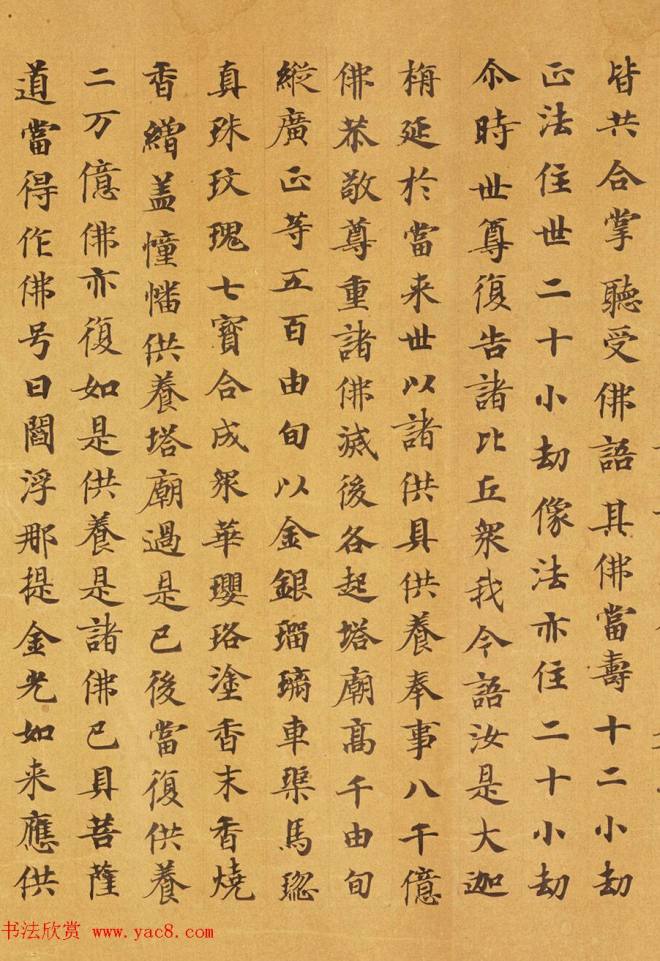 皆共合掌聽受佛語其佛當壽十二小劫
正法住世二十小劫像法亦住二十小劫
尒時世尊復告諸比丘衆我今語汝是大迦
栴延於當来世以諸供具供養奉事八千億
佛恭敬尊重諸佛滅後各起塔廟高千由旬
縱廣正等五百由旬以金銀瑠璃車璖馬瑙
真珠玫瑰七寶合成衆華瓔珞塗香末香燒
香繒盖幢幡供養塔廟過是已後當復供養
二万億佛亦復如是供養是諸佛已具菩薩
道當得作佛号曰閻浮那提金光如来應供
书法欣赏 www.yac8.com